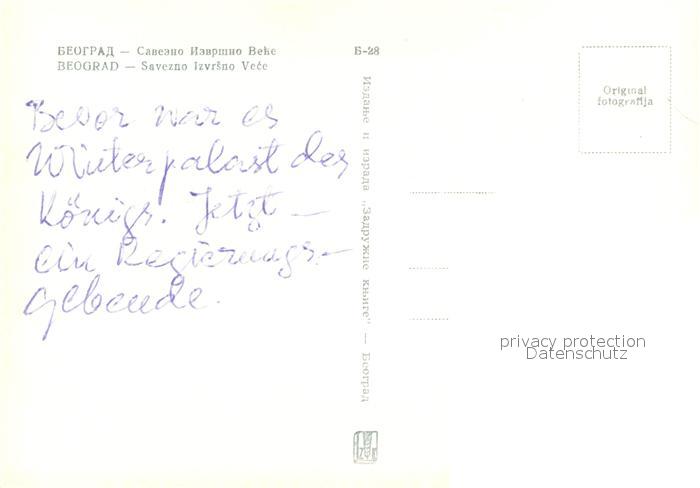 БЕОГРАД — Савезно Извршно Веће
BEOGRAD — Savezno Izvršno Veće
Б-28
Bevor war es
Winterpalast des
Königs. Jetzt —
ein Regierungs-
gebeude.
Издање и израда „Задружне књиге" — Београд
Original
fotografija
privacy protection
Datenschutz